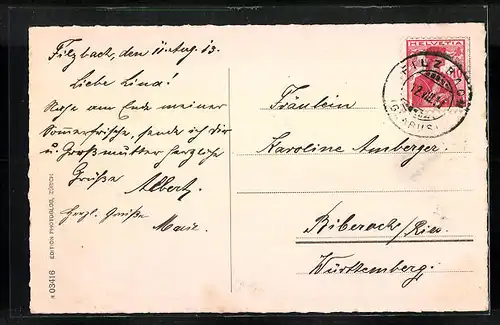 Filzbach, den 11. Aug. 13.
Liebe Lina!
Nahe am Ende meiner
Sommerfrische, sende ich dir
u. Großmutter herzliche
Grüße Albert.
Herzl. Grüße
Marie.
EDITION PHOTOGLOB, ZÜRICH
03416
HELVETIA
FILZBACH
(GLARUS)
Fräulein
Karoline Amberger.
Biberach/Riss.
Württemberg.